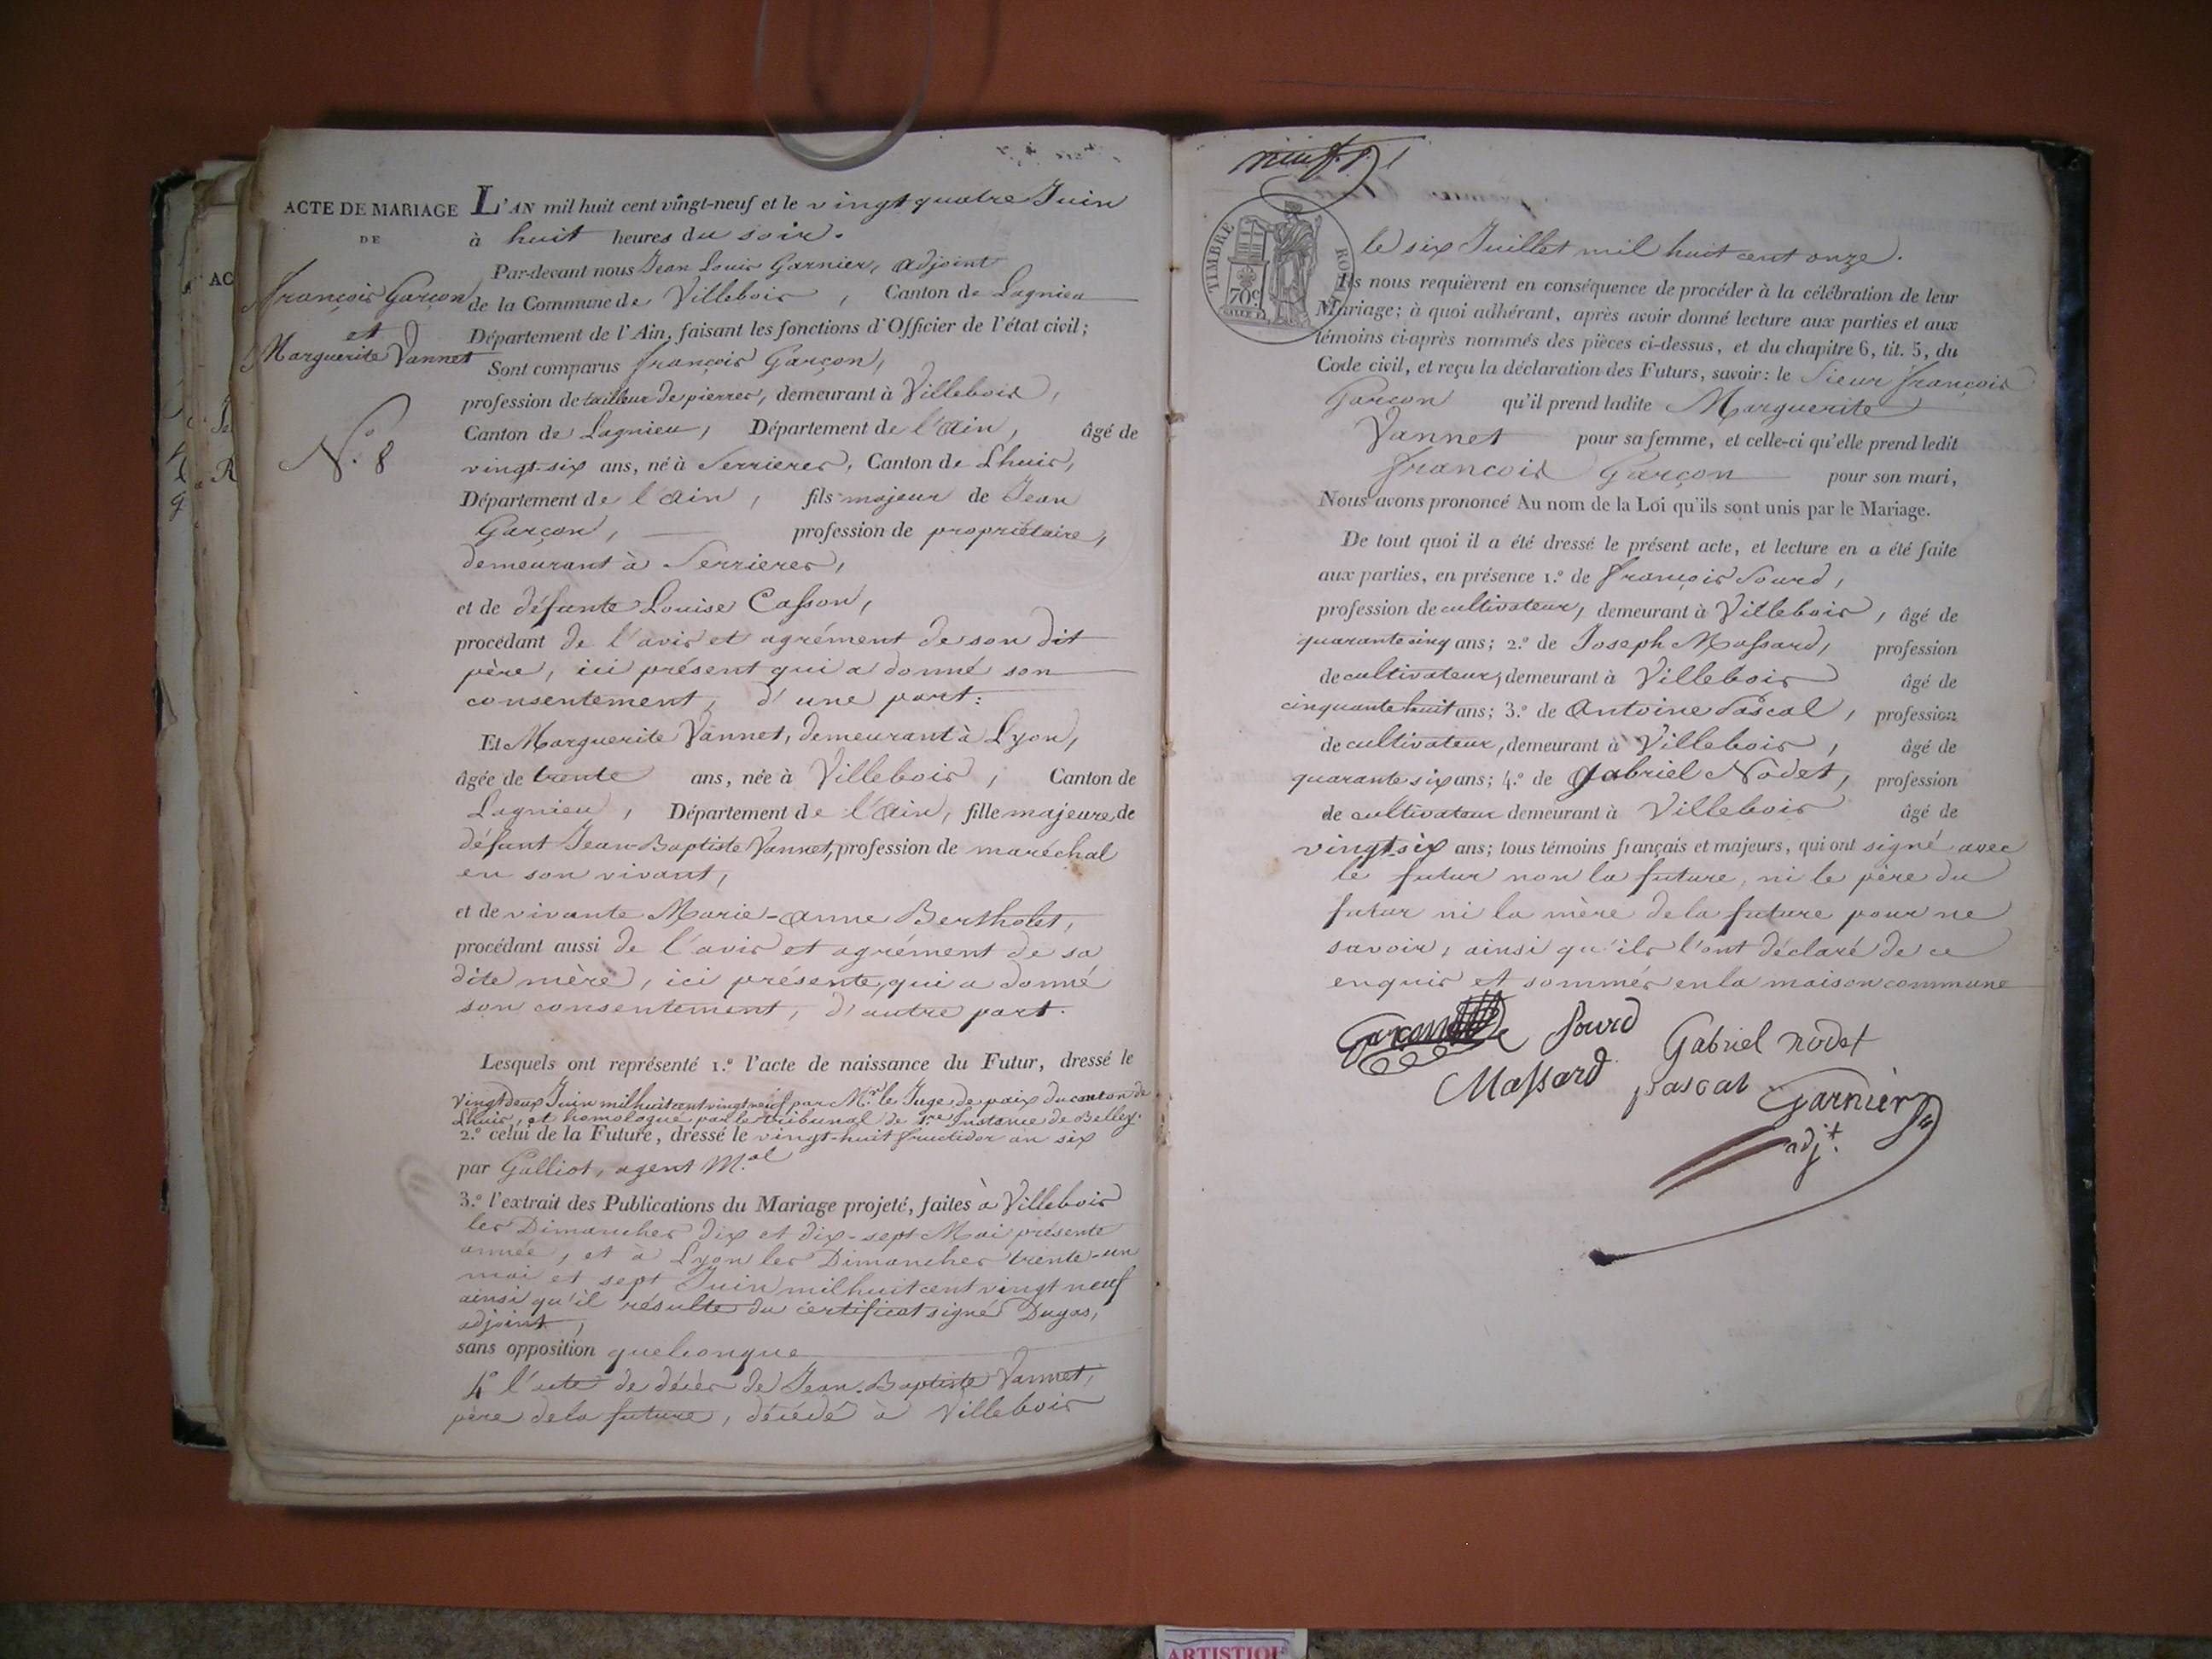 ACTE DE MARIAGE
DE
François Garçon
et
Marguerite Vannet
N.º 8
L'AN mil huit cent vingt-neuf et le vingt quatre Juin
à huit heures du soir.
Par-devant nous Jean Louis Garnier, adjoint
de la Commune de Villebois, Canton de Lagnieu
Département de l'Ain, faisant les fonctions d'Officier de l'état civil;
Sont comparus françois Garçon,
profession de tailleur de pierres, demeurant à Villebois,
Canton de Lagnieu, Département de l'Ain, âgé de
vingt-six ans, né à Serrieres, Canton de Lhuis,
Département de l'Ain, fils majeur de Jean
Garçon, profession de propriétaire,
demeurant à Serrieres,
et de défunte Louise Casson,
procédant de l'avis et agrément de son dit
père, ici présent qui a donné son
consentement, d'une part:
Et Marguerite Vannet, demeurant à Lyon,
âgée de trente ans, née à Villebois, Canton de
Lagnieu, Département de l'Ain, fille majeure de
défunt Jean-Baptiste Vannet, profession de maréchal
en son vivant,
et de vivante Marie-Anne Bertholet,
procédant aussi de l'avis et agrément de sa
dite mère, ici présente, qui a donné
son consentement, d'autre part.
Lesquels ont représenté 1.º l'acte de naissance du Futur, dressé le
vingt deux Juin mil huit cent vingt neuf par M.r le Juge de paix du canton de
Lhuis, et homologué par le tribunal de 1.re Instance de Belley.
2.º celui de la Future, dressé le vingt-huit fructidor an six
par Galliot, agent M.al
3.º l'extrait des Publications du Mariage projeté, faites à Villebois
les Dimanches dix et dix-sept Mai présente
année, et à Lyon les Dimanches trente-un
mai et sept Juin mil huit cent vingt neuf
ainsi qu'il résulte du certificat signé Dugas,
adjoint,
sans opposition quelconque
4º l'acte de décès de Jean-Baptiste Vannet,
père de la future, décédé à Villebois
neuf.
TIMBRE ROYAL
70c
le six Juillet mil huit cent onze.
Ils nous requièrent en conséquence de procéder à la célébration de leur
Mariage; à quoi adhérant, après avoir donné lecture aux parties et aux
témoins ci-après nommés des pièces ci-dessus, et du chapitre 6, tit. 5, du
Code civil, et reçu la déclaration des Futurs, savoir: le Sieur françois
Garçon qu'il prend ladite Marguerite
Vannet pour sa femme, et celle-ci qu'elle prend ledit
françois Garçon pour son mari,
Nous avons prononcé Au nom de la Loi qu'ils sont unis par le Mariage.
De tout quoi il a été dressé le présent acte, et lecture en a été faite
aux parties, en présence 1.º de françois Sourd,
profession de cultivateur, demeurant à Villebois, âgé de
quarante cinq ans; 2.º de Joseph Massard, profession
de cultivateur, demeurant à Villebois âgé de
cinquante huit ans; 3.º de Antoine Pascal, profession
de cultivateur, demeurant à Villebois, âgé de
quarante six ans; 4.º de Gabriel Nodet, profession
de cultivateur demeurant à Villebois âgé de
vingt-six ans; tous témoins français et majeurs, qui ont signé avec
le futur non la future, ni le père du
futur ni la mère de la future pour ne
savoir, ainsi qu'ils l'ont déclaré de ce
enquis et sommés en la maison commune
Garcon Sourd Gabriel nodet
Massard pascal Garnier
adj.t
ARTISTIQUE